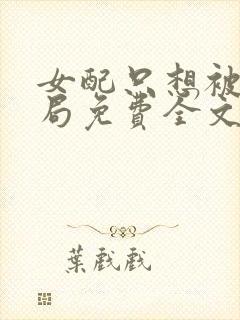 女配只想被
局免费全文
葉戲戲